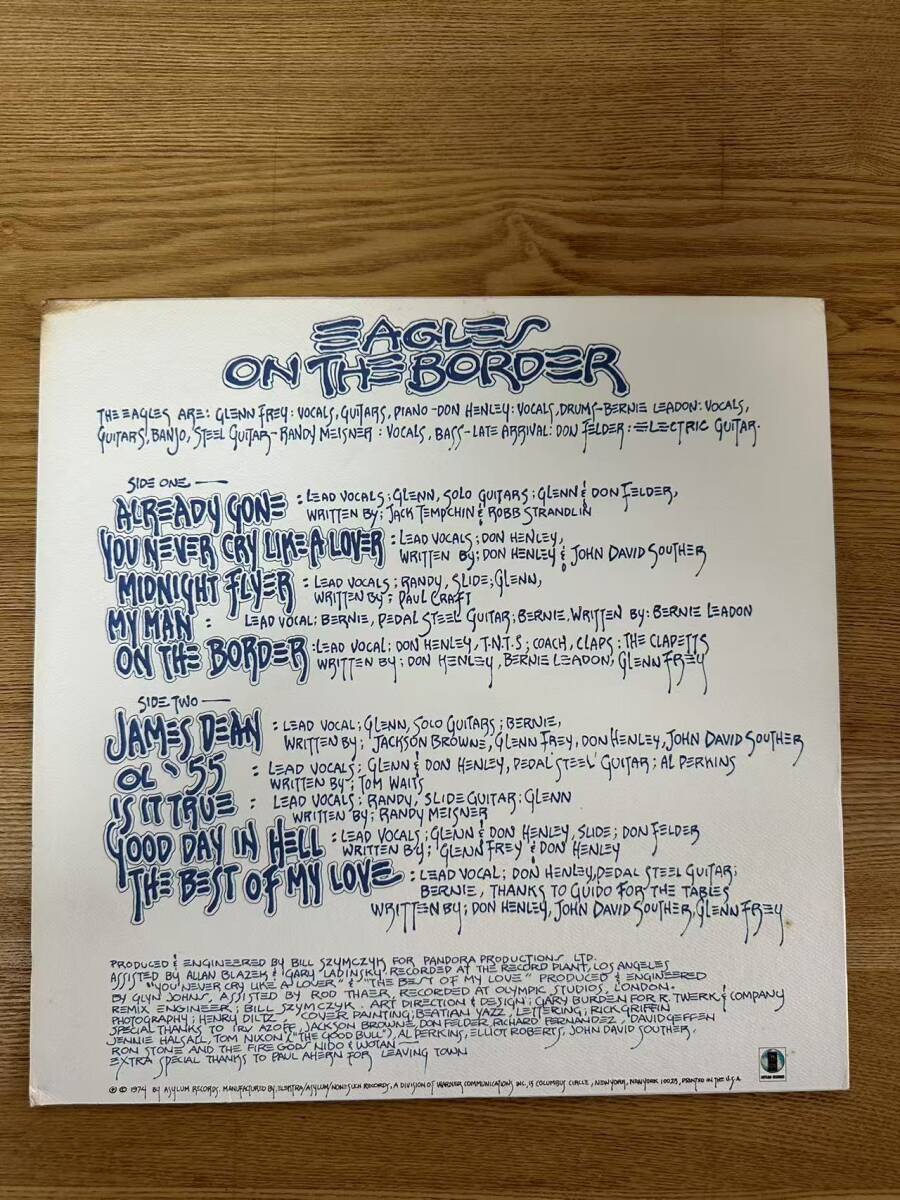 EAGLES
ON THE BORDER
THE EAGLES ARE: GLENN FREY: VOCALS, GUITARS, PIANO - DON HENLEY: VOCALS, DRUMS - BERNIE LEADON: VOCALS,
GUITARS, BANJO, STEEL GUITAR - RANDY MEISNER: VOCALS, BASS - LATE ARRIVAL: DON FELDER: ELECTRIC GUITAR.
SIDE ONE —
ALREADY GONE : LEAD VOCALS; GLENN, SOLO GUITARS; GLENN & DON FELDER,
WRITTEN BY; JACK TEMPCHIN & ROBB STRANDLIN
YOU NEVER CRY LIKE A LOVER : LEAD VOCALS; DON HENLEY,
WRITTEN BY; DON HENLEY & JOHN DAVID SOUTHER
MIDNIGHT FLYER : LEAD VOCALS; RANDY, SLIDE; GLENN,
WRITTEN BY; PAUL CRAFT
MY MAN : LEAD VOCAL; BERNIE, PEDAL STEEL GUITAR; BERNIE, WRITTEN BY: BERNIE LEADON
ON THE BORDER : LEAD VOCAL; DON HENLEY, T.N.T.S; COACH, CLAPS; THE CLAPETTS
WRITTEN BY; DON HENLEY, BERNIE LEADON, GLENN FREY
SIDE TWO —
JAMES DEAN : LEAD VOCAL; GLENN, SOLO GUITARS; BERNIE,
WRITTEN BY; JACKSON BROWNE, GLENN FREY, DON HENLEY, JOHN DAVID SOUTHER
OL' 55 : LEAD VOCALS; GLENN & DON HENLEY, PEDAL STEEL GUITAR; AL PERKINS
WRITTEN BY; TOM WAITS
IS IT TRUE : LEAD VOCALS; RANDY, SLIDE GUITAR; GLENN
WRITTEN BY; RANDY MEISNER
GOOD DAY IN HELL : LEAD VOCALS; GLENN & DON HENLEY, SLIDE; DON FELDER
WRITTEN BY; GLENN FREY & DON HENLEY
THE BEST OF MY LOVE : LEAD VOCAL; DON HENLEY, PEDAL STEEL GUITAR;
BERNIE, THANKS TO GUIDO FOR THE TABLES
WRITTEN BY; DON HENLEY, JOHN DAVID SOUTHER, GLENN FREY
PRODUCED & ENGINEERED BY BILL SZYMCZYK FOR PANDORA PRODUCTIONS LTD.
ASSISTED BY ALLAN BLAZEK & GARY LADINSKY. RECORDED AT THE RECORD PLANT, LOS ANGELES
"YOU NEVER CRY LIKE A LOVER" & "THE BEST OF MY LOVE" PRODUCED & ENGINEERED
BY GLYN JOHNS, ASSISTED BY ROD THAER, RECORDED AT OLYMPIC STUDIOS, LONDON.
REMIX ENGINEER; BILL SZYMCZYK. ART DIRECTION & DESIGN; GARY BURDEN FOR R. TWERK & COMPANY
PHOTOGRAPHY; HENRY DILTZ COVER PAINTING; BEATIAN YAZZ, LETTERING; RICK GRIFFIN
SPECIAL THANKS TO IRV AZOFF, JACKSON BROWNE, DON FELDER, RICHARD FERNANDEZ, DAVID GEFFEN
JENNIE HALSALL, TOM NIXON ("THE GOOD BULL"), AL PERKINS, ELLIOT ROBERTS, JOHN DAVID SOUTHER,
RON STONE AND THE FIRE GODS NIDO & WOTAN —
EXTRA SPECIAL THANKS TO PAUL AHERN FOR LEAVING TOWN
℗ © 1974 BY ASYLUM RECORDS. MANUFACTURED BY ELEKTRA/ASYLUM/NONESUCH RECORDS, A DIVISION OF WARNER COMMUNICATIONS INC, 15 COLUMBUS CIRCLE, NEW YORK, NEW YORK 10023, PRINTED IN THE U.S.A.
ASYLUM RECORDS